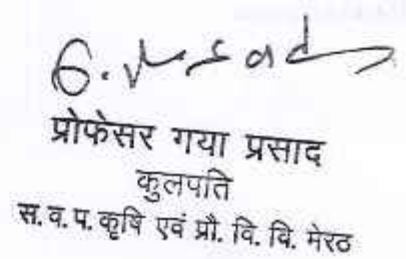 G. Prasad
प्रोफेसर गया प्रसाद
कुलपति
स. व. प. कृषि एवं प्रौ. वि. वि. मेरठ